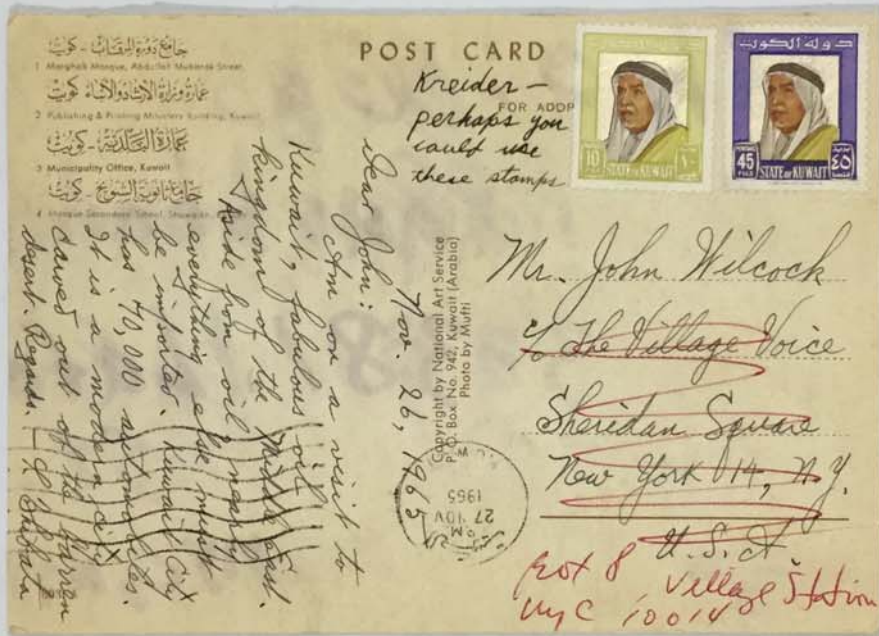 جامع دورة المرقاب - كويت
1 Marghab Mosque, Abdullah Mubarak Street.
عمارة وزارة الإرشاد والأنباء كويت
2 Publishing & Printing Ministery Building, Kuwait
عمارة البلدية - كويت
3 Municipality Office, Kuwait
جامع ثانوية الشويخ - كويت
4 Mosque Secondary School, Shuwaikh
POST CARD
FOR ADDR
Kreider -
perhaps you
could use
these stamps
دولة الكويت
10
FILS
١٠
STATE OF KUWAIT
دولة الكويت
45
FILS
٤٥
STATE OF KUWAIT
Nov. 26, 1965
Dear John:
Am on a visit to
Kuwait, fabulous oil
kingdom of the Middle East.
Aside from oil, nearly
everything else must
be imported. Kuwait City
has 70,000 automobiles.
It is a modern city
carved out of the barren
desert. Regards.
Copyright by National Art Service
P. O. Box No. 942, Kuwait (Arabia)
Photo by Mufti
27 NOV
1965
Mr. John Wilcock
c/o The Village Voice
Sheridan Square
New York 14, N.Y.
U.S.A
Box 8 Village Station
NYC 10014